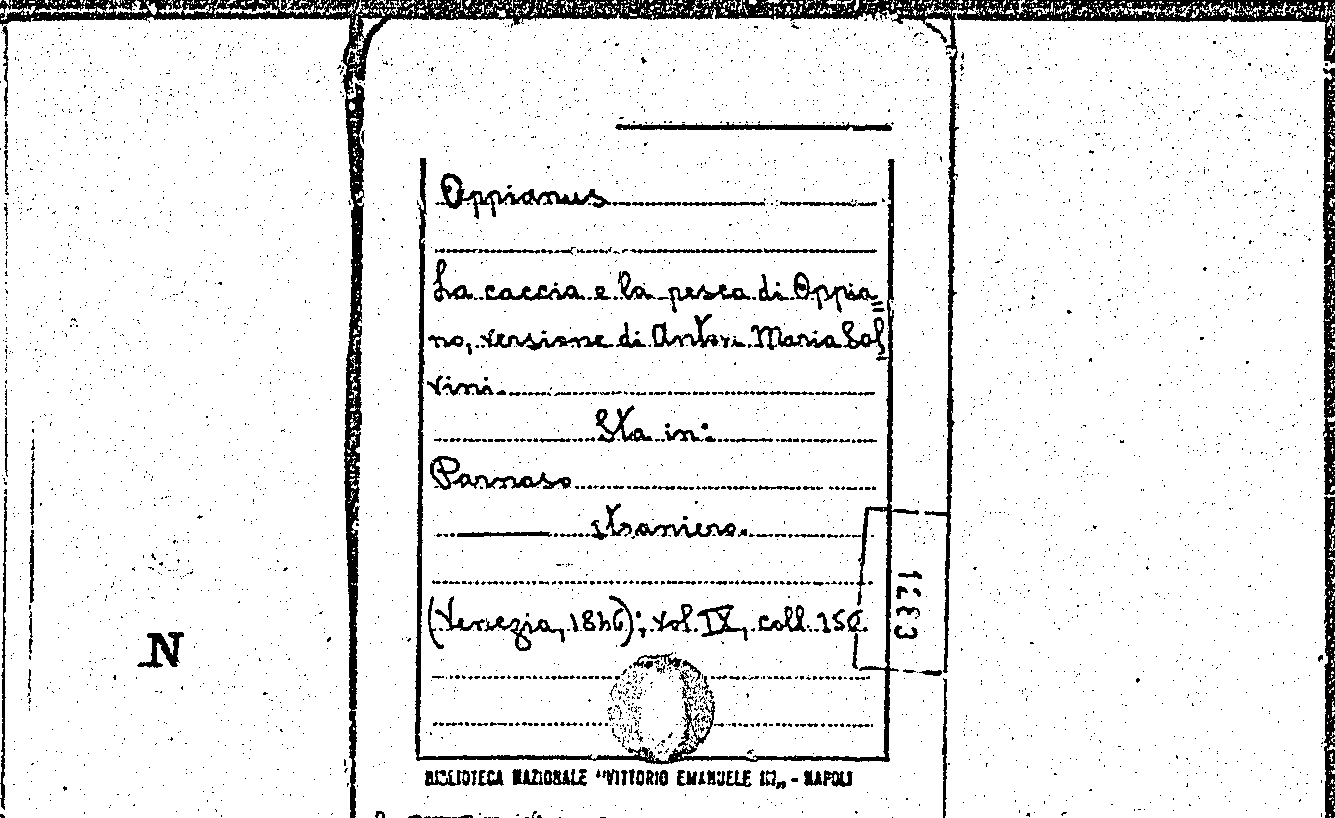 Oppianus
La caccia e la pesca di Oppia=
no, versione di Anton Maria Sal=
vini.
Sta in:
Parnaso
straniero.
(Venezia, 1846); vol. IX, coll.
N
BIBLIOTECA NAZIONALE "VITTORIO EMANUELE III„ - NAPOLI